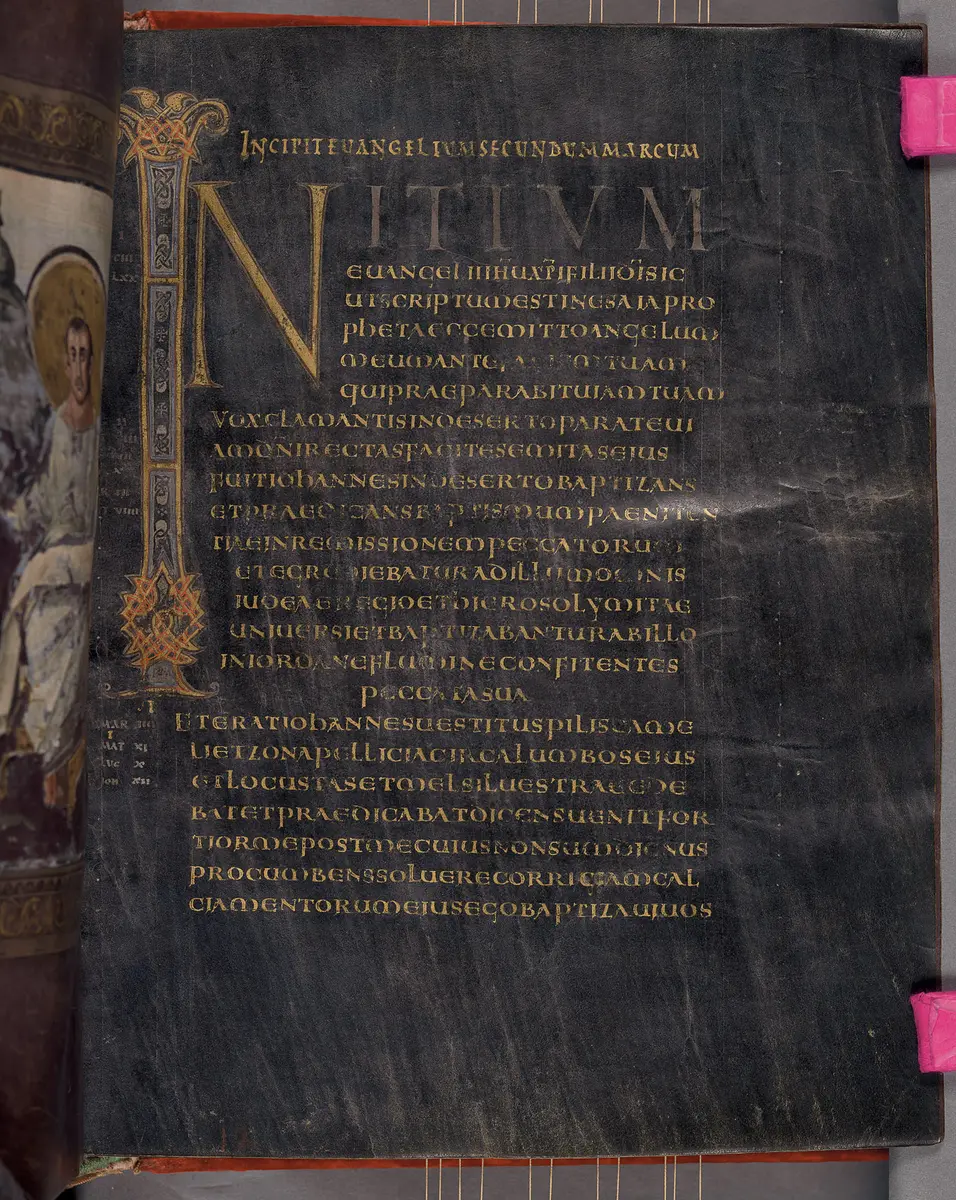 INCIPIT EVANGELIUM SECUNDUM MARCUM
INITIVM
EUANGELII IHU XPI FILII DI SIC
UT SCRIPTUM EST IN ESAIA PRO
PHETA ECCE MITTO ANGELUM
MEUM ANTE TUAM
QUI PRAEPARABIT UIAM TUAM
VOX CLAMANTIS IN DESERTO PARATE UI
AM DNI RECTAS FACITE SEMITAS EIUS
FUIT IOHANNES IN DESERTO BAPTIZANS
ET PRAEDICANS BAPTISMUM PAENITEN
TIAE IN REMISSIONEM PECCATORUM
ET EGREDIEBATUR AD ILLUM OMNIS
IUDEAE REGIO ET HIEROSOLYMITAE
UNIUERSI ET BAPTIZABANTUR AB ILLO
IN IORDANE FLUMINE CONFITENTES
PECCATA SUA
ET ERAT IOHANNES UESTITUS PILIS CAME
LI ET ZONA PELLICIA CIRCA LUMBOS EIUS
ET LOCUSTAS ET MEL SILUESTRAE EDE
BAT ET PRAEDICABAT DICENS UENIT FOR
TIOR ME POST ME CUIUS NON SUM DIGNUS
PROCUMBENS SOLUERE CORRIGIAM CAL
CIAMENTORUM EIUS EGO BAPTIZAUI UOS
MAR
MAT XI
LUC X
IOH